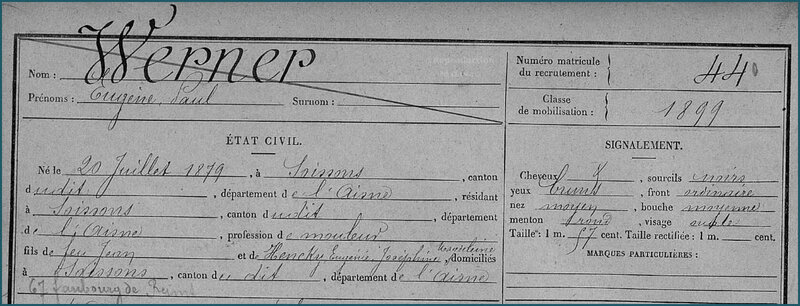 Nom : Werner
Prénoms : Eugène, Paul Surnom :
Numéro matricule du recrutement : 440
Classe de mobilisation : 1899
ÉTAT CIVIL.
Né le 20 Juillet 1879, à Soissons, canton
dudit, département de l'Aisne, résidant
à Soissons, canton dudit, département
de l'Aisne, profession de mouleur
fils de feu Jean et de Hencky Eugénie Joséphine, domiciliés
à Soissons, canton dudit, département de l'Aisne
67 faubourg de Reims
SIGNALEMENT.
Cheveux sourcils noirs
yeux bruns, front ordinaire
nez moyen, bouche moyenne
menton rond, visage
Taille : 1 m. 57 cent. Taille rectifiée : 1 m. cent.
MARQUES PARTICULIÈRES :